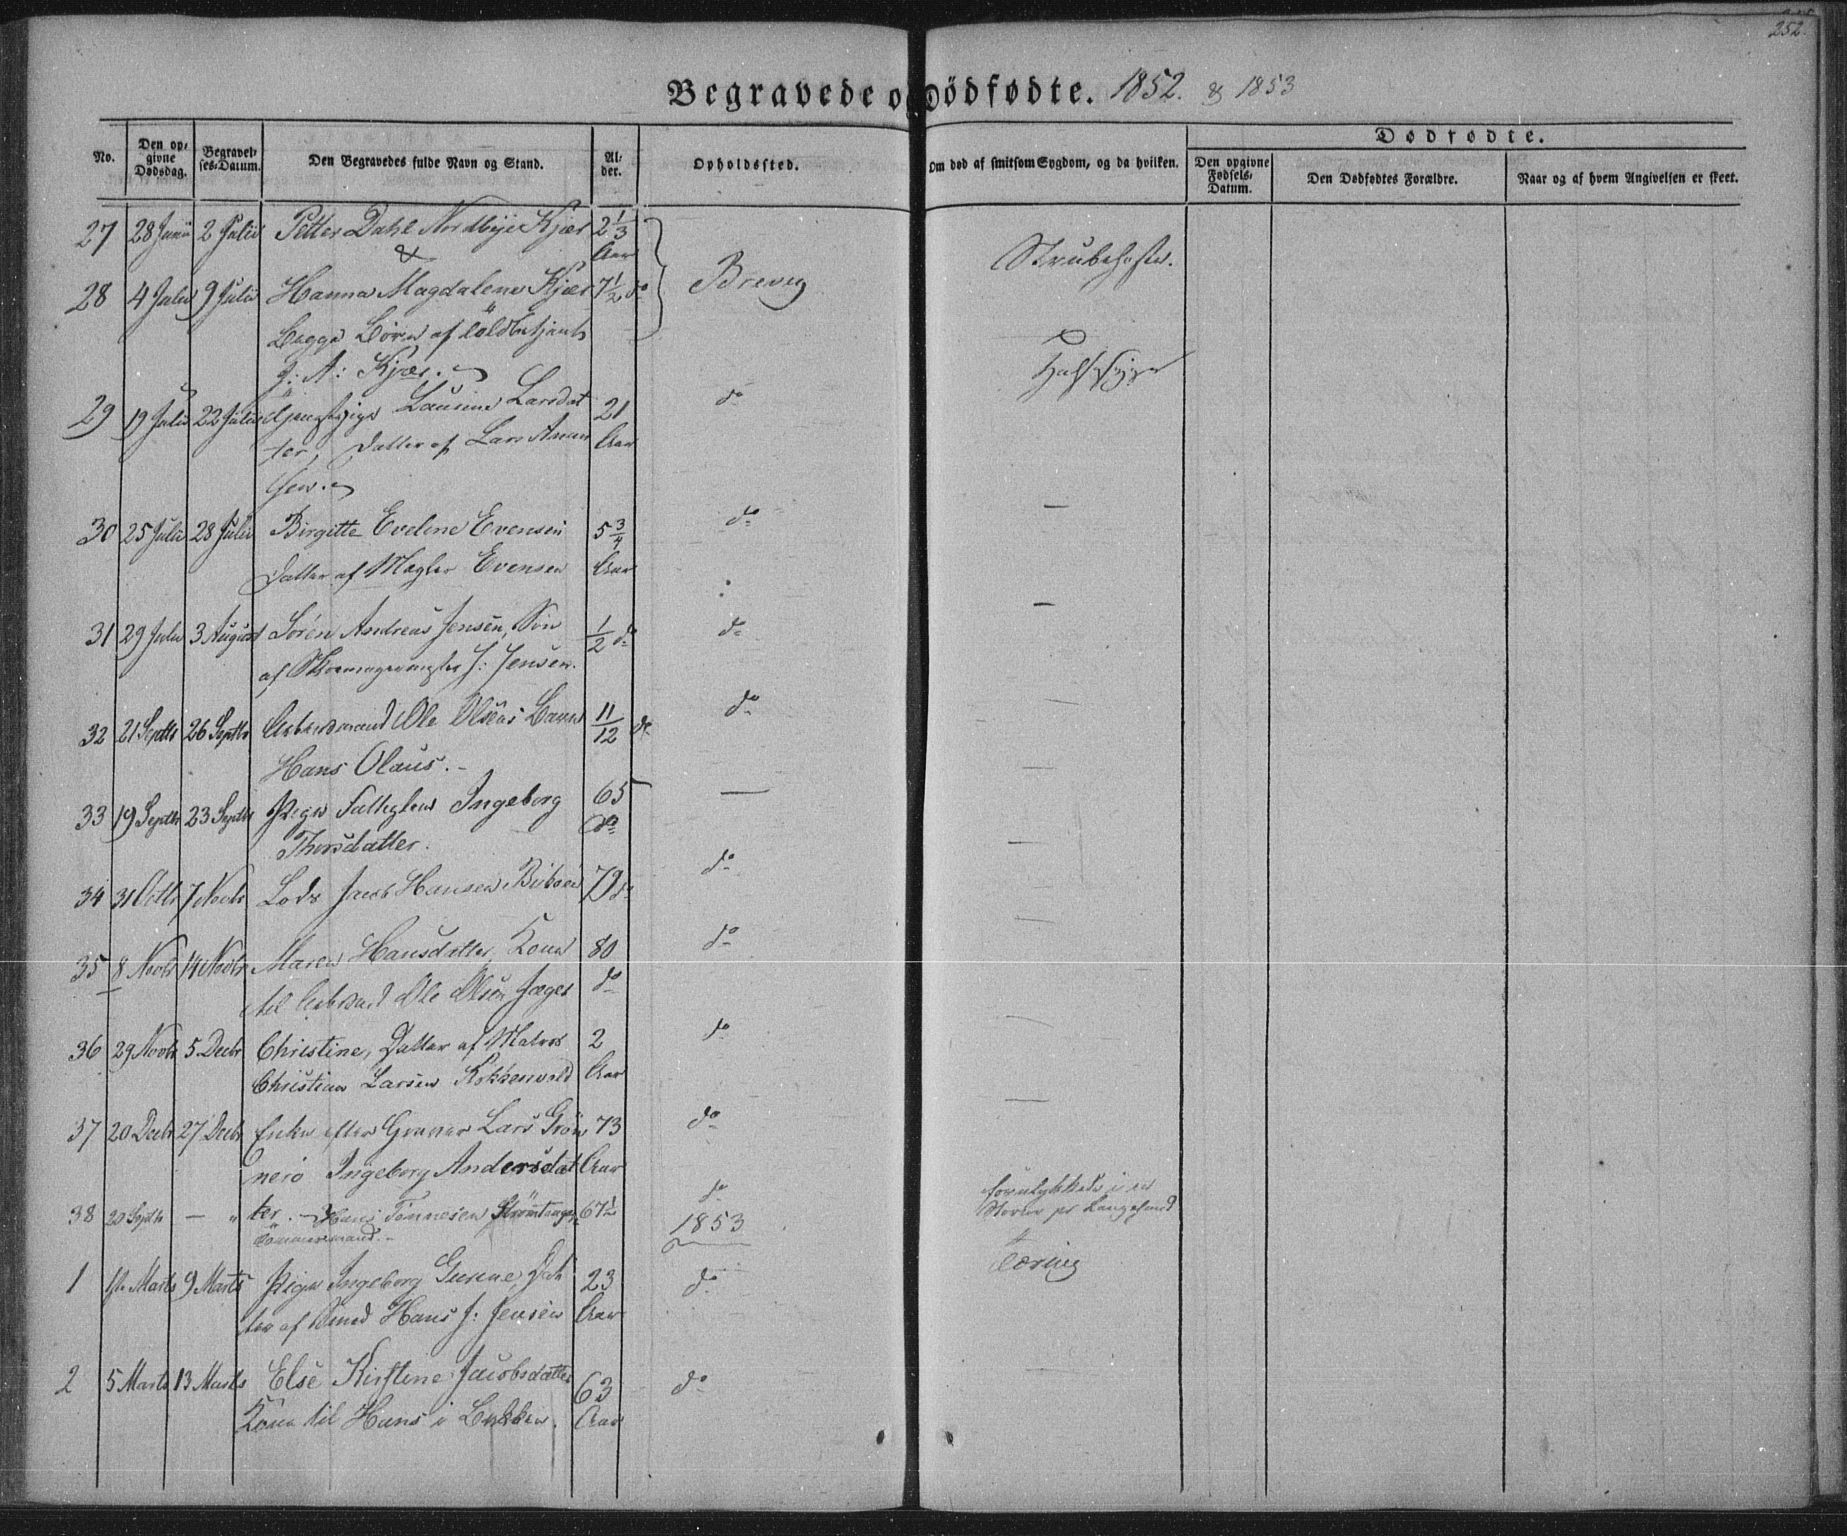 252.
Begravede o Dødfødte. 1852. & 1853
No.
Den opgivne Dødsdag.
Begravelses-Datum.
Den Begravedes fulde Navn og Stand.
Alder.
Opholdssted.
Om død af smitsom Sygdom, og da hvilken.
Dødfødte.
Den opgivne Fødsels-Datum.
Den Dødfødtes Forældre.
Naar og af hvem Angivelsen er skeet.
27 28 Junii 2 Julii Petter Dahl Nordbye Kjær 2 1/3
& Aar
Strubehoste.
28 4 Julii 9 Julii Hanna Magdalena Kjær 7 1/2 do Brevig
Begge Børn af Toldbetjent
J: A: Kjær.
29 19 Julii 22 Julii Lausine Larsdat 21 do
ter, Datter af Lars Amun Aar
sen.
30 25 Julii 28 Julii Birgitte Eveline Evensen 5 3/4 do —
Datter af Mægler Evensen Aar
31 29 Julii 3 August Sören Andreas Jensen, Sön 1/2 do do —
af Skomagermester J: Jensen.
32 21 Septb 26 Septbr Arbeidsmand Ole Olsens Barn 11/12 do do —
Hans Olaus.
33 19 Septbr 23 Septbr Pige Ingeborg 65 — —
Thorsdatter. do
34 31 Octbr 7 Novbr Lods Jacob Hansen 79 do do —
35 8 Novbr 14 Novbr Maren Hansdatter, Kone 80 do —
til Ole Olsen Jæger do
36 29 Novbr 5 Decbr Christine, Datter af Matros 2 do —
Christian Larsen Aar
37 20 Decbr 27 Decbr Enke efter Lars Grön 73 do —
nerö Ingeborg Andersdat Aar
38 20 Septbr — " ter. — Hans Tönnesen Strömtangen 67 1/2 do forulykkede i en
Tömmermand. 1853 Storm
1 1ste Marts 9 Marts Pige Ingeborg Gurine, Dat 23 do Tæring
ter af Smed Hans J: Jensen Aar
2 5 Marts 13 Marts Else Kirstine Jacobsdatter 63 do —
Kone til Hans i Bakken. Aar